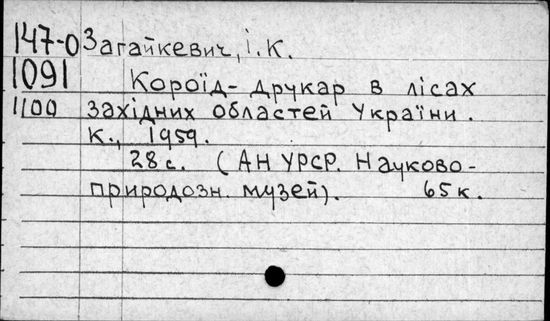 147-0 Загайкевич, І. К.
1091 Короїд-друкар в лісах
1100 західних областей України.
К., 1959.
28 с. (АН УРСР. Науково-
природозн. музей). 65 к.